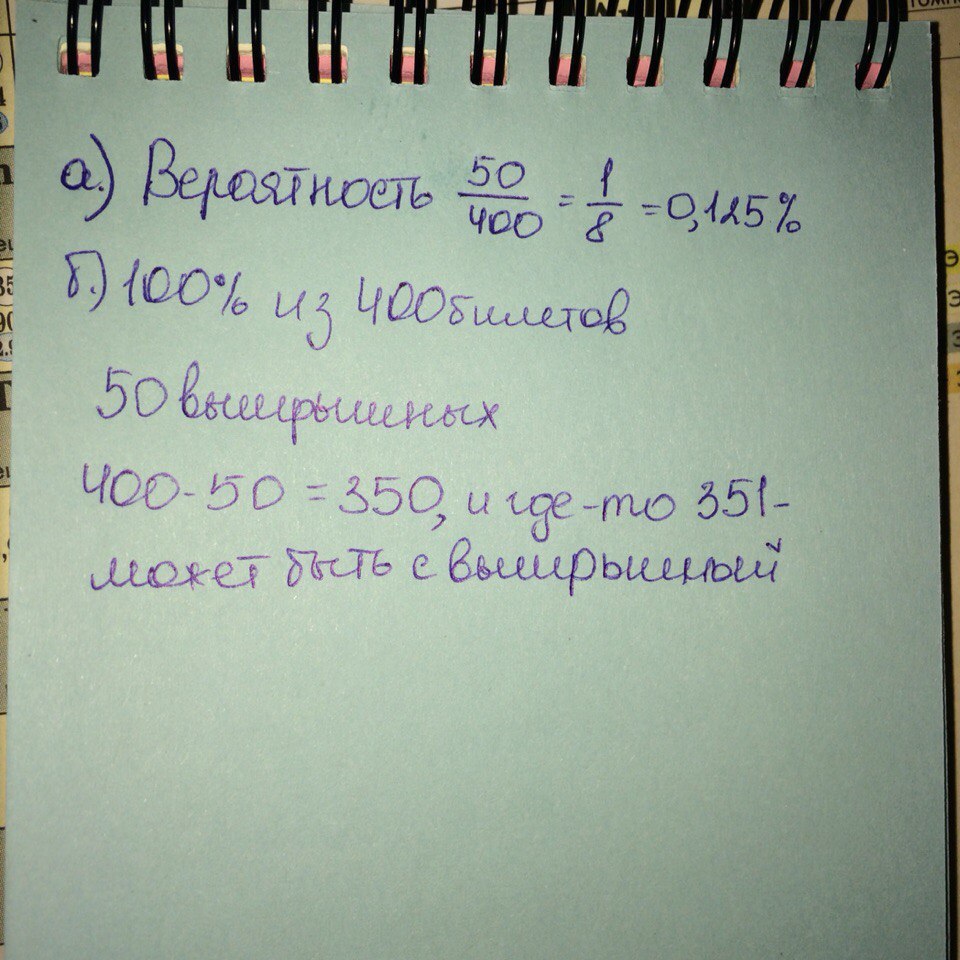 а.) Вероятность 50/400 = 1/8 = 0,125%
б.) 100% из 400 билетов
50 выигрышных
400-50 = 350, и где-то 351-
может быть с выигрышный